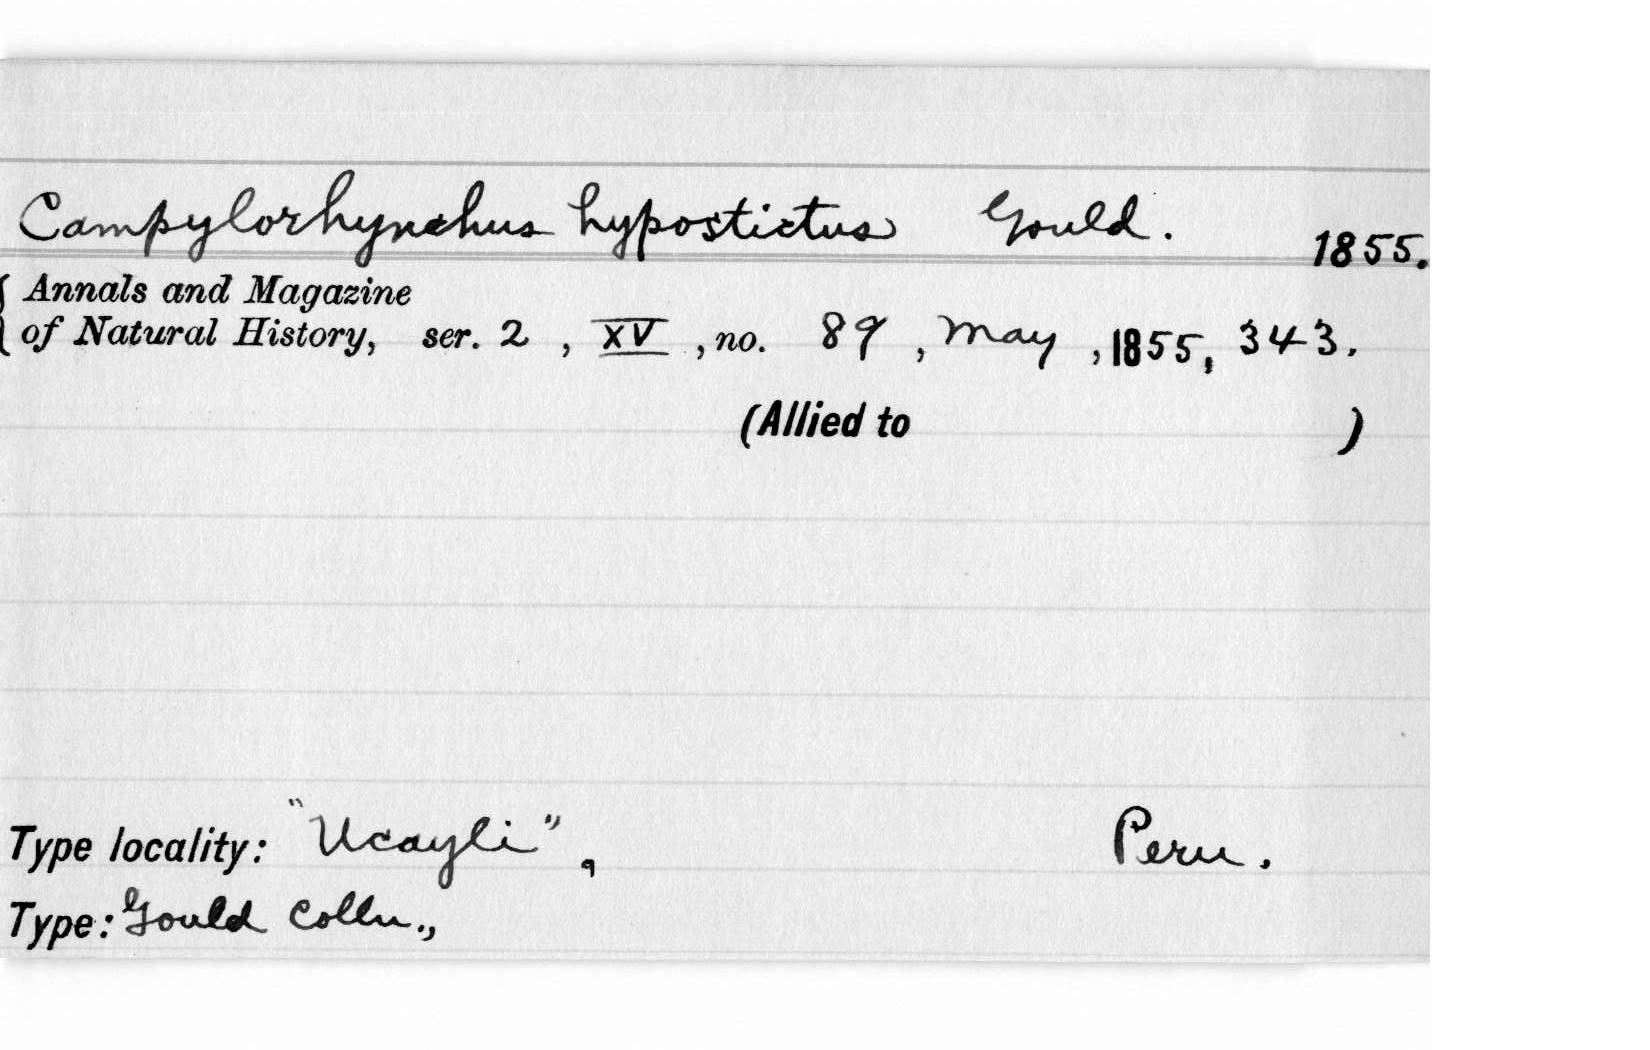 Campylorhynchus hypostictus Gould. 1855.
Annals and Magazine
of Natural History, ser. 2, XV, no. 89, May, 1855, 343.
(Allied to )
Type locality: "Ucayli", Peru.
Type: Gould Colln.,